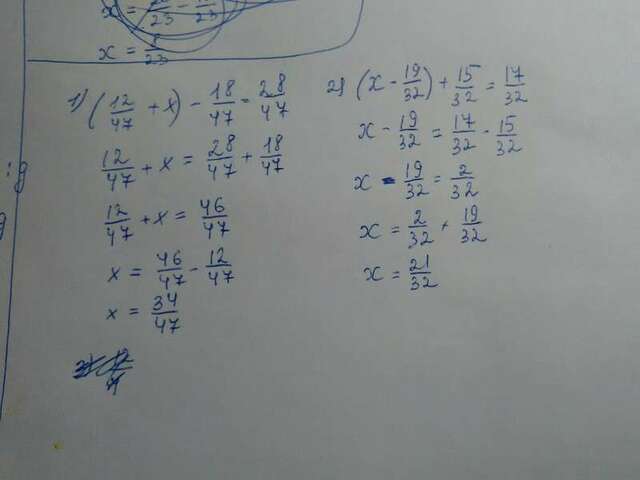 x = 8/23
1) (12/47 + x) - 18/47 = 28/47
12/47 + x = 28/47 + 18/47
12/47 + x = 46/47
x = 46/47 - 12/47
x = 34/47
2) (x - 19/32) + 15/32 = 17/32
x - 19/32 = 17/32 - 15/32
x - 19/32 = 2/32
x = 2/32 + 19/32
x = 21/32